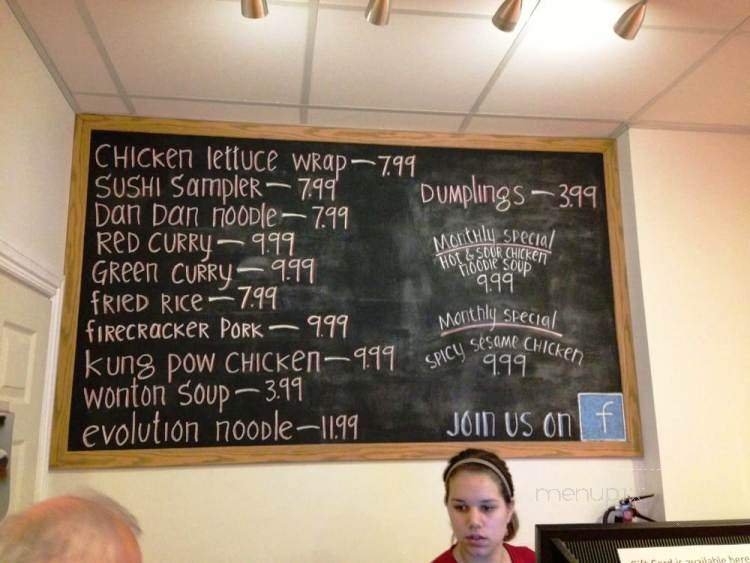 CHICKEN lettuce WRAP — 7.99
SUSHI Sampler — 7.99
Dan Dan noodle — 7.99
RED CURRY — 9.99
GREEN CURRY — 9.99
fRIED RICE — 7.99
fIRECRACKER PORK — 9.99
kung pow CHICKEN — 9.99
Wonton Soup — 3.99
evolution noodle — 11.99
DUMPlINGS — 3.99
Monthly Special
HOT & SOUR CHICKEN
noodle soup
9.99
Monthly special
SPICY Sesame CHICKEN
9.99
JOIN US ON f
menupix
Gift Card is available here